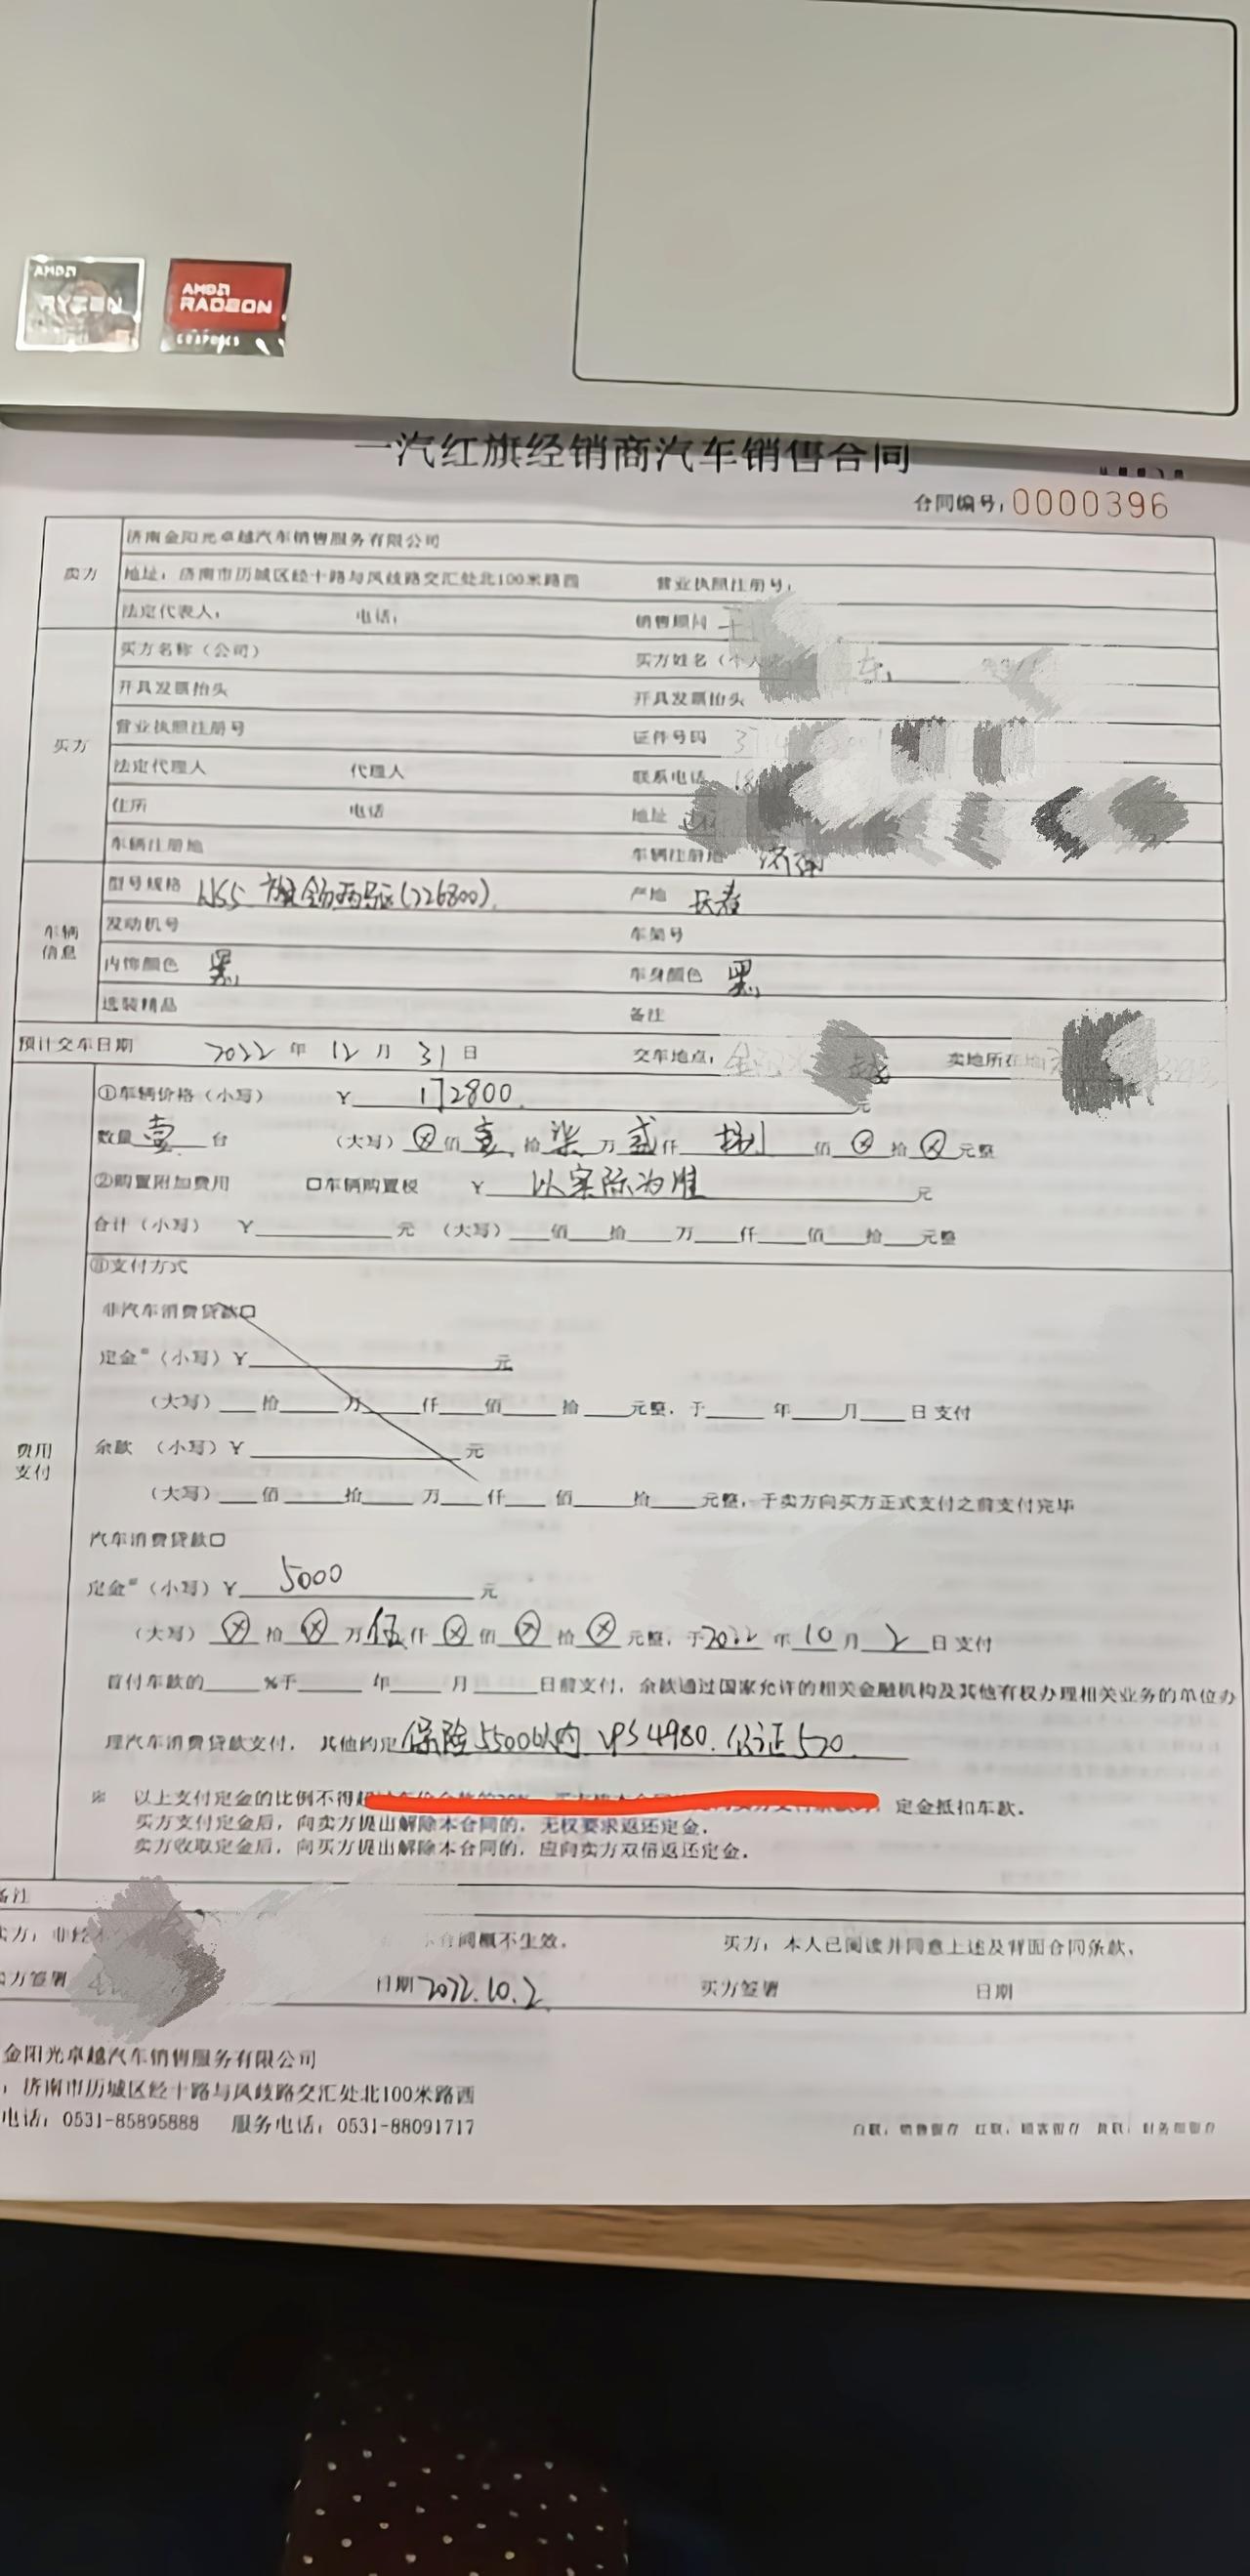 AMD
RYZEN
AMD
RADEON
GRAPHICS
一汽红旗经销商汽车销售合同
合同编号：0000396
卖方
济南金阳光卓越汽车销售服务有限公司
地址：济南市历城区经十路与凤歧路交汇处北100米路西 营业执照注册号：
法定代表人： 电话： 销售顾问
买方
买方名称（公司） 买方姓名（个人
开具发票抬头 开具发票抬头
营业执照注册号 证件号码
法定代理人 代理人 联系电话
住所 电话 地址
车辆注册地 车辆注册地 济南
车辆信息
型号规格 HS5 旗 (226800) 产地 长春
发动机号 车架号
内饰颜色 黑 车身颜色 黑
选装精品 备注
预计交车日期 2022 年 12 月 31 日 交车地点： 实地所在地
费用支付
①车辆价格（小写） ￥ 172800 元
数量 壹 台 （大写）ⓧ佰 壹 拾 柒 万 贰 仟 捌 佰 ⓧ 拾 ⓧ 元整
②购置附加费用 口车辆购置税 ￥ 以实际为准 元
合计（小写） ￥ 元 （大写） 佰 拾 万 仟 佰 拾 元整
③支付方式
非汽车消费贷款口
定金※（小写）￥ 元
（大写） 拾 万 仟 佰 拾 元整，于 年 月 日 支付
余款 （小写）￥ 元
（大写） 佰 拾 万 仟 佰 拾 元整，于卖方向买方正式支付之前支付完毕
汽车消费贷款口
定金※（小写）￥ 5000 元
（大写） ⓧ 拾 ⓧ 万 伍 仟 ⓧ 佰 ⓧ 拾 ⓧ 元整，于2022 年 10 月 2 日 支付
首付车款的 %于 年 月 日前支付，余款通过国家允许的相关金融机构及其他有权办理相关业务的单位办
理汽车消费贷款支付， 其他约定 保险5500以内 VPS4980. 公证520
※ 以上支付定金的比例不得超 定金抵扣车款。
买方支付定金后，向卖方提出解除本合同的，无权要求返还定金。
卖方收取定金后，向买方提出解除本合同的，应向卖方双倍返还定金。
备注
卖方：非经 合同概不生效。 买方：本人已阅读并同意上述及背面合同条款，
卖方签署 日期 2022.10.2 买方签署 日期
金阳光卓越汽车销售服务有限公司
：济南市历城区经十路与凤歧路交汇处北100米路西
电话：0531-85895888 服务电话：0531-88091717
白联：销售留存 红联：顾客留存 黄联：财务部留存